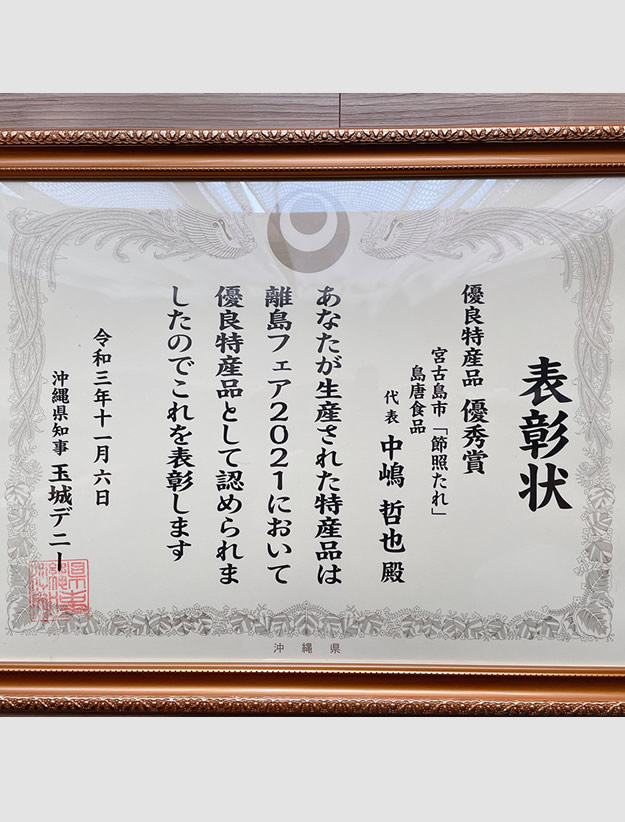 表彰状
優良特産品 優秀賞
宮古島市「節照たれ」
島唐食品
代表 中嶋 哲也 殿
あなたが生産された特産品は
離島フェア2021において
優良特産品として認められま
したのでこれを表彰します
令和三年十一月六日
沖縄県知事 玉城デニー
沖縄県